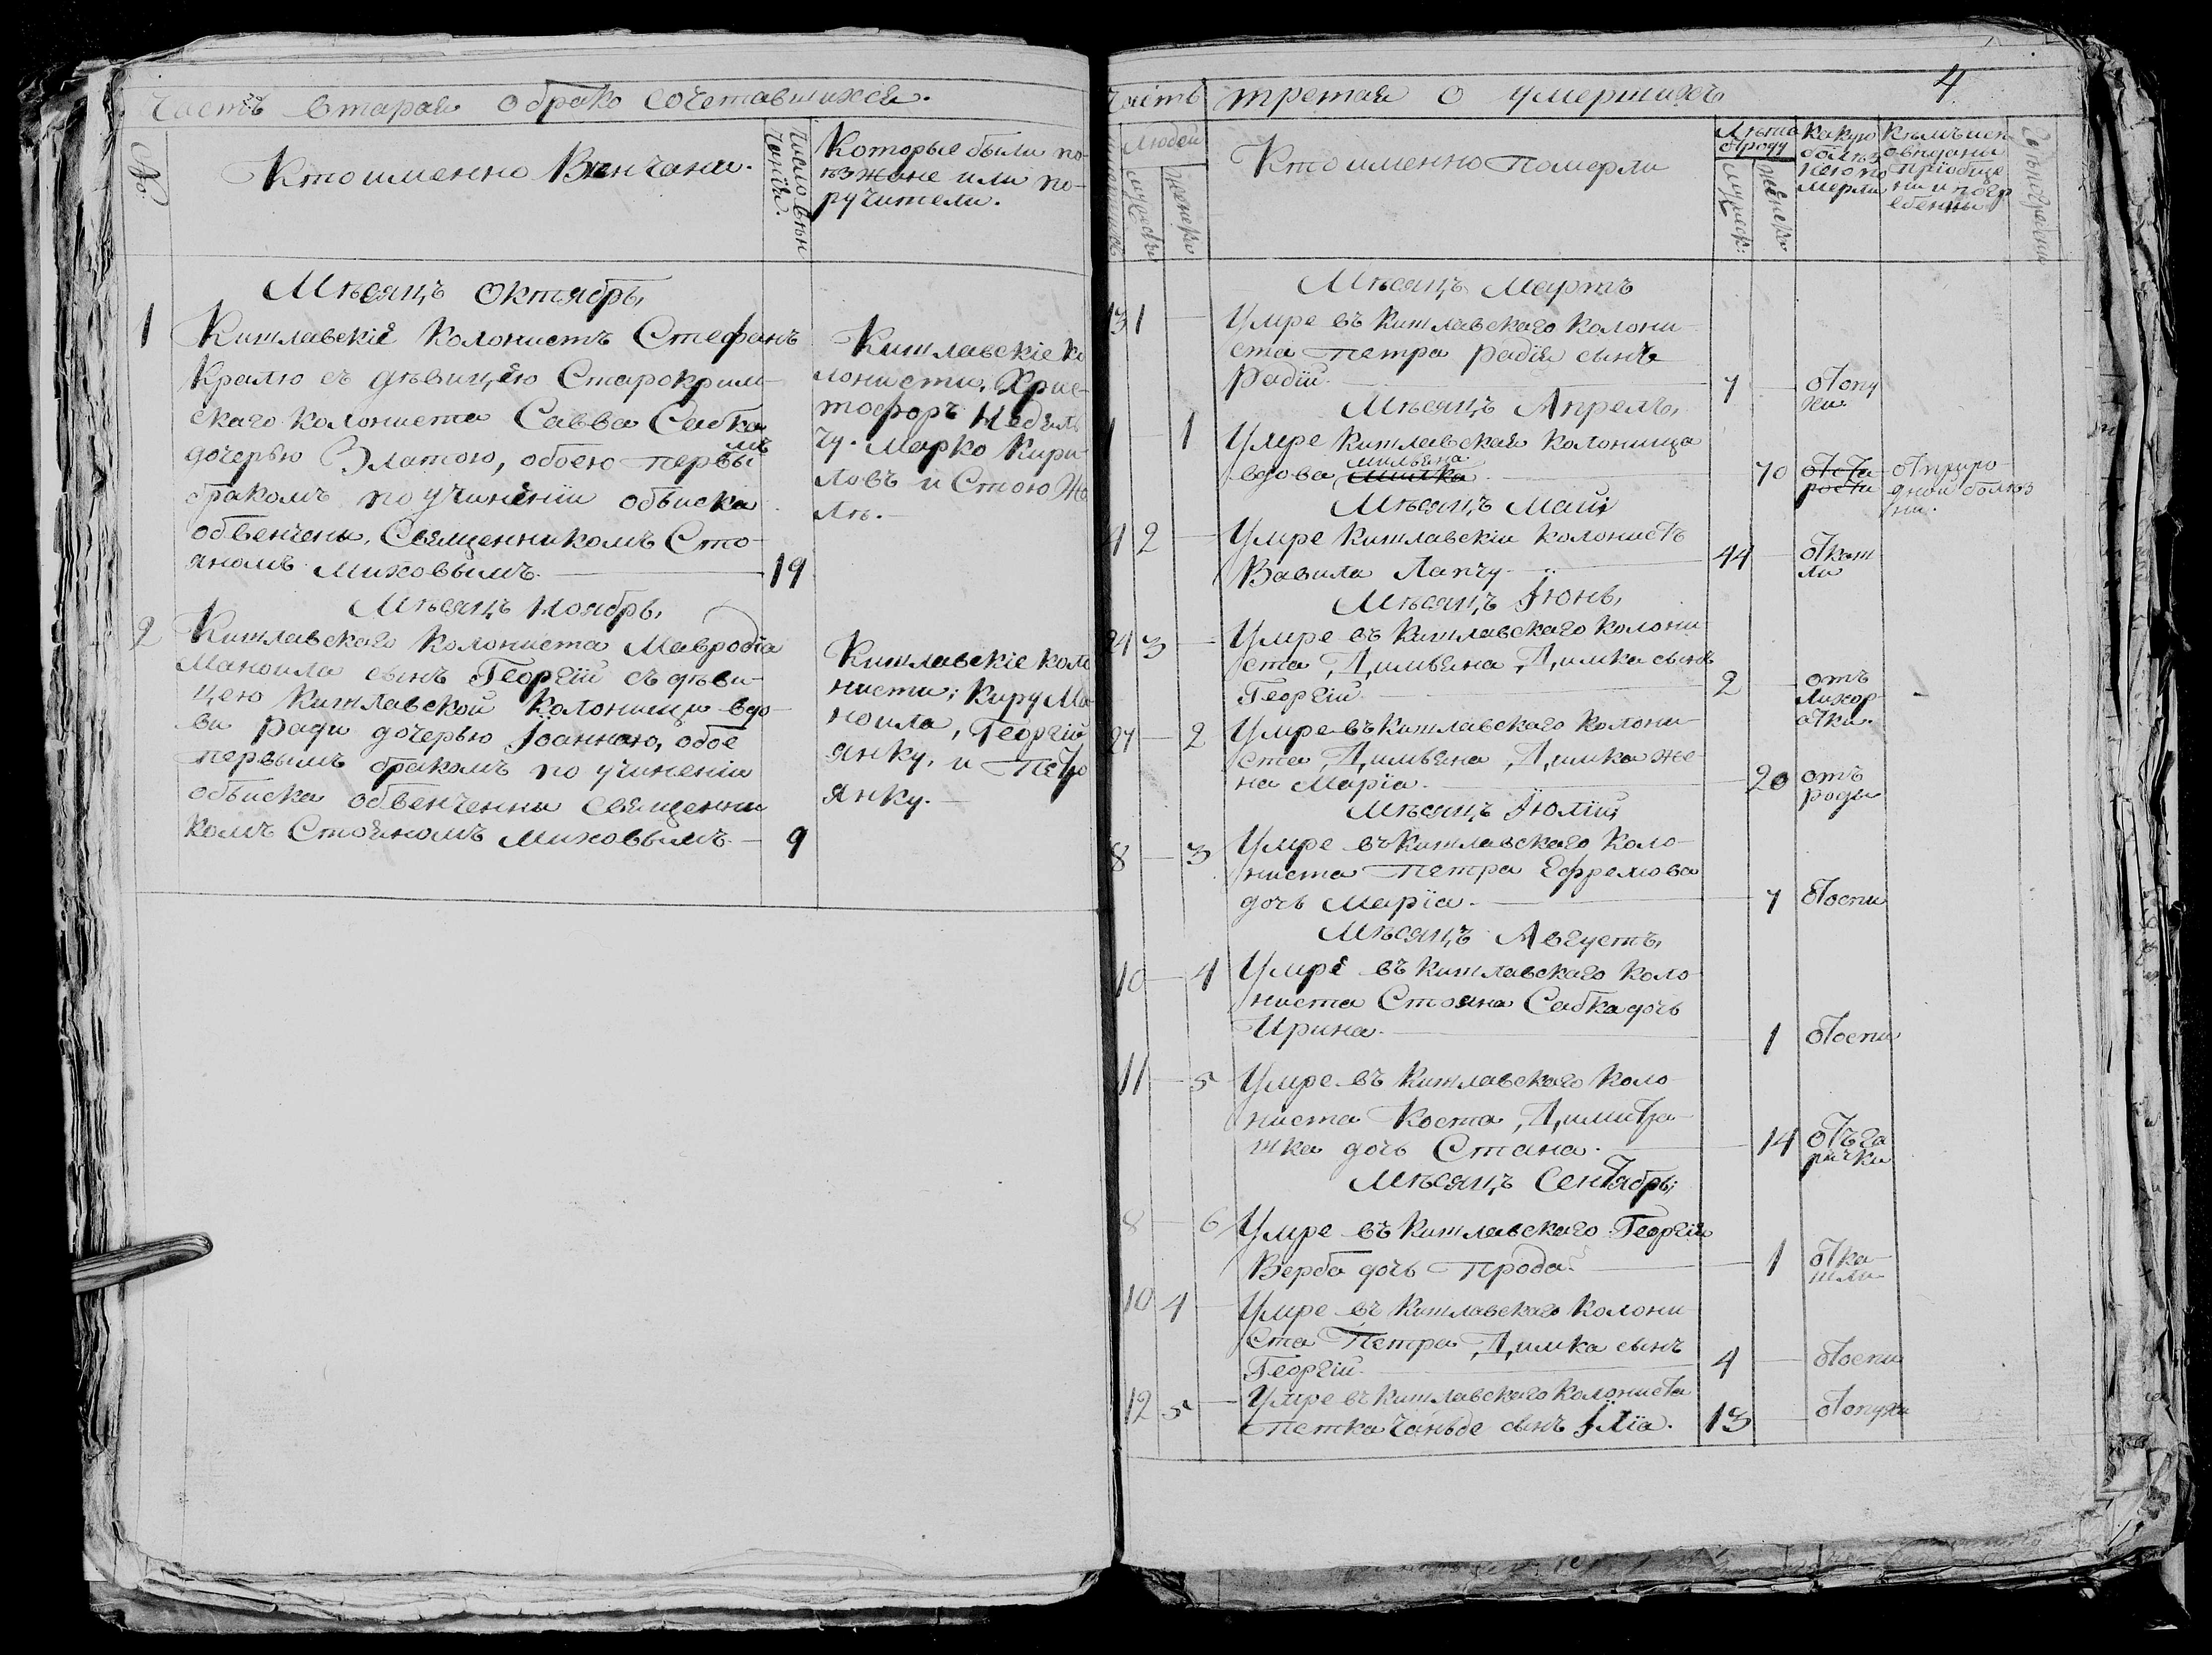 Часть вторая о брако сочетавшихся.
№
Кто именно Венчани.
Число вѣн
чанія.
Которые были по-
ѣзжане или по-
ручители.
Мѣсяцъ Октябрь,
1
Кишлавскіе Колонистъ Стефанъ
Кралю съ дѣвицею Старокрим-
скаго колониста Савва Сабка
дочерью Златою, обоею первы
мъ
бракомъ по учиненіи обыска
обвенчени, Священникомъ Сто-
яномъ Миховымъ. 19
Кишлавскіе ко
лонисти, Хрис-
тофоръ Недель
чу. Марко Кири
ловъ и Стою Же
лѣ.
Мѣсяцъ Ноябрь,
2
Кишлавскаго Колониста Мавродіа
Маноила сынъ Георгій съ дѣви-
цею Кишлавской Колонищи вдо-
ви Ради дочерью Іоанною, обое
первымъ бракомъ по учиненіи
обыска обвенченни священни
комъ Стояномъ Миховымъ. 9
Кишлавскіе коло
нисти; Киру Ма-
ноила, Георгій
Янку, и Петро
Янку.
Часть третая о умершихъ
4
Людей
мужескъ
женски
Кто именно Померли
Лѣта
отроду
мужеск:
женск:
Какую
болѣз
нею по
мерли
Кѣмъ исп
овидани
пріобще
ни и погр
ебенны
Мѣсяцъ Мартъ
13 1
Умре въ Кишлавскаго колони
ста Петра Радія сынъ
Радій. 7 отопу
хи.
Мѣсяцъ Апрель,
1 1
Умре Кишлавская колонища
Мильвена
вдова Милка 70 отста
рости
отприро
дной болѣз
ни.
Мѣсяцъ Маій
4 2
Умре Кишлавскіи колонистъ
Вавила Лапчу 44 откаш
ли
Мѣсяцъ Іюнь,
24 3
Умре въ Кишлавскаго колони
ста Димьяна Димка сынъ
Георгій. 2 отъ
лихор
атки.
27 2
Умре въ Кишлавскаго колони-
ста Димьяна Димка же
на Маріа. 20 отъ
роды
Мѣсяцъ Іюлій
8 3
Умре въ Кишлавскаго коло-
ниста Петра Ефремова
дочь Маріа. 7 отоспи
Мѣсяцъ Августъ,
10 4
Умре въ Кишлавскаго коло
ниста Стояна Сабка дочь
Ирина. 1 отоспи
11 5
Умре въ Кишлавскаго коло
ниста Коста Димитра-
шка дочь Стана. 14 отъга
рячки
Мѣсяцъ Сентябрь;
8 6
Умре въ Кишлавскаго Георгія
Верба дочь Прода. 1 отка
шли
10 4
Умре въ Кишлавскаго колони
ста Петра Димка сынъ
Георгій. 4 отоспи
12 5
Умре въ Кишлавскаго колониста
Петка Чаньде сынъ Іліа. 13 отопухи